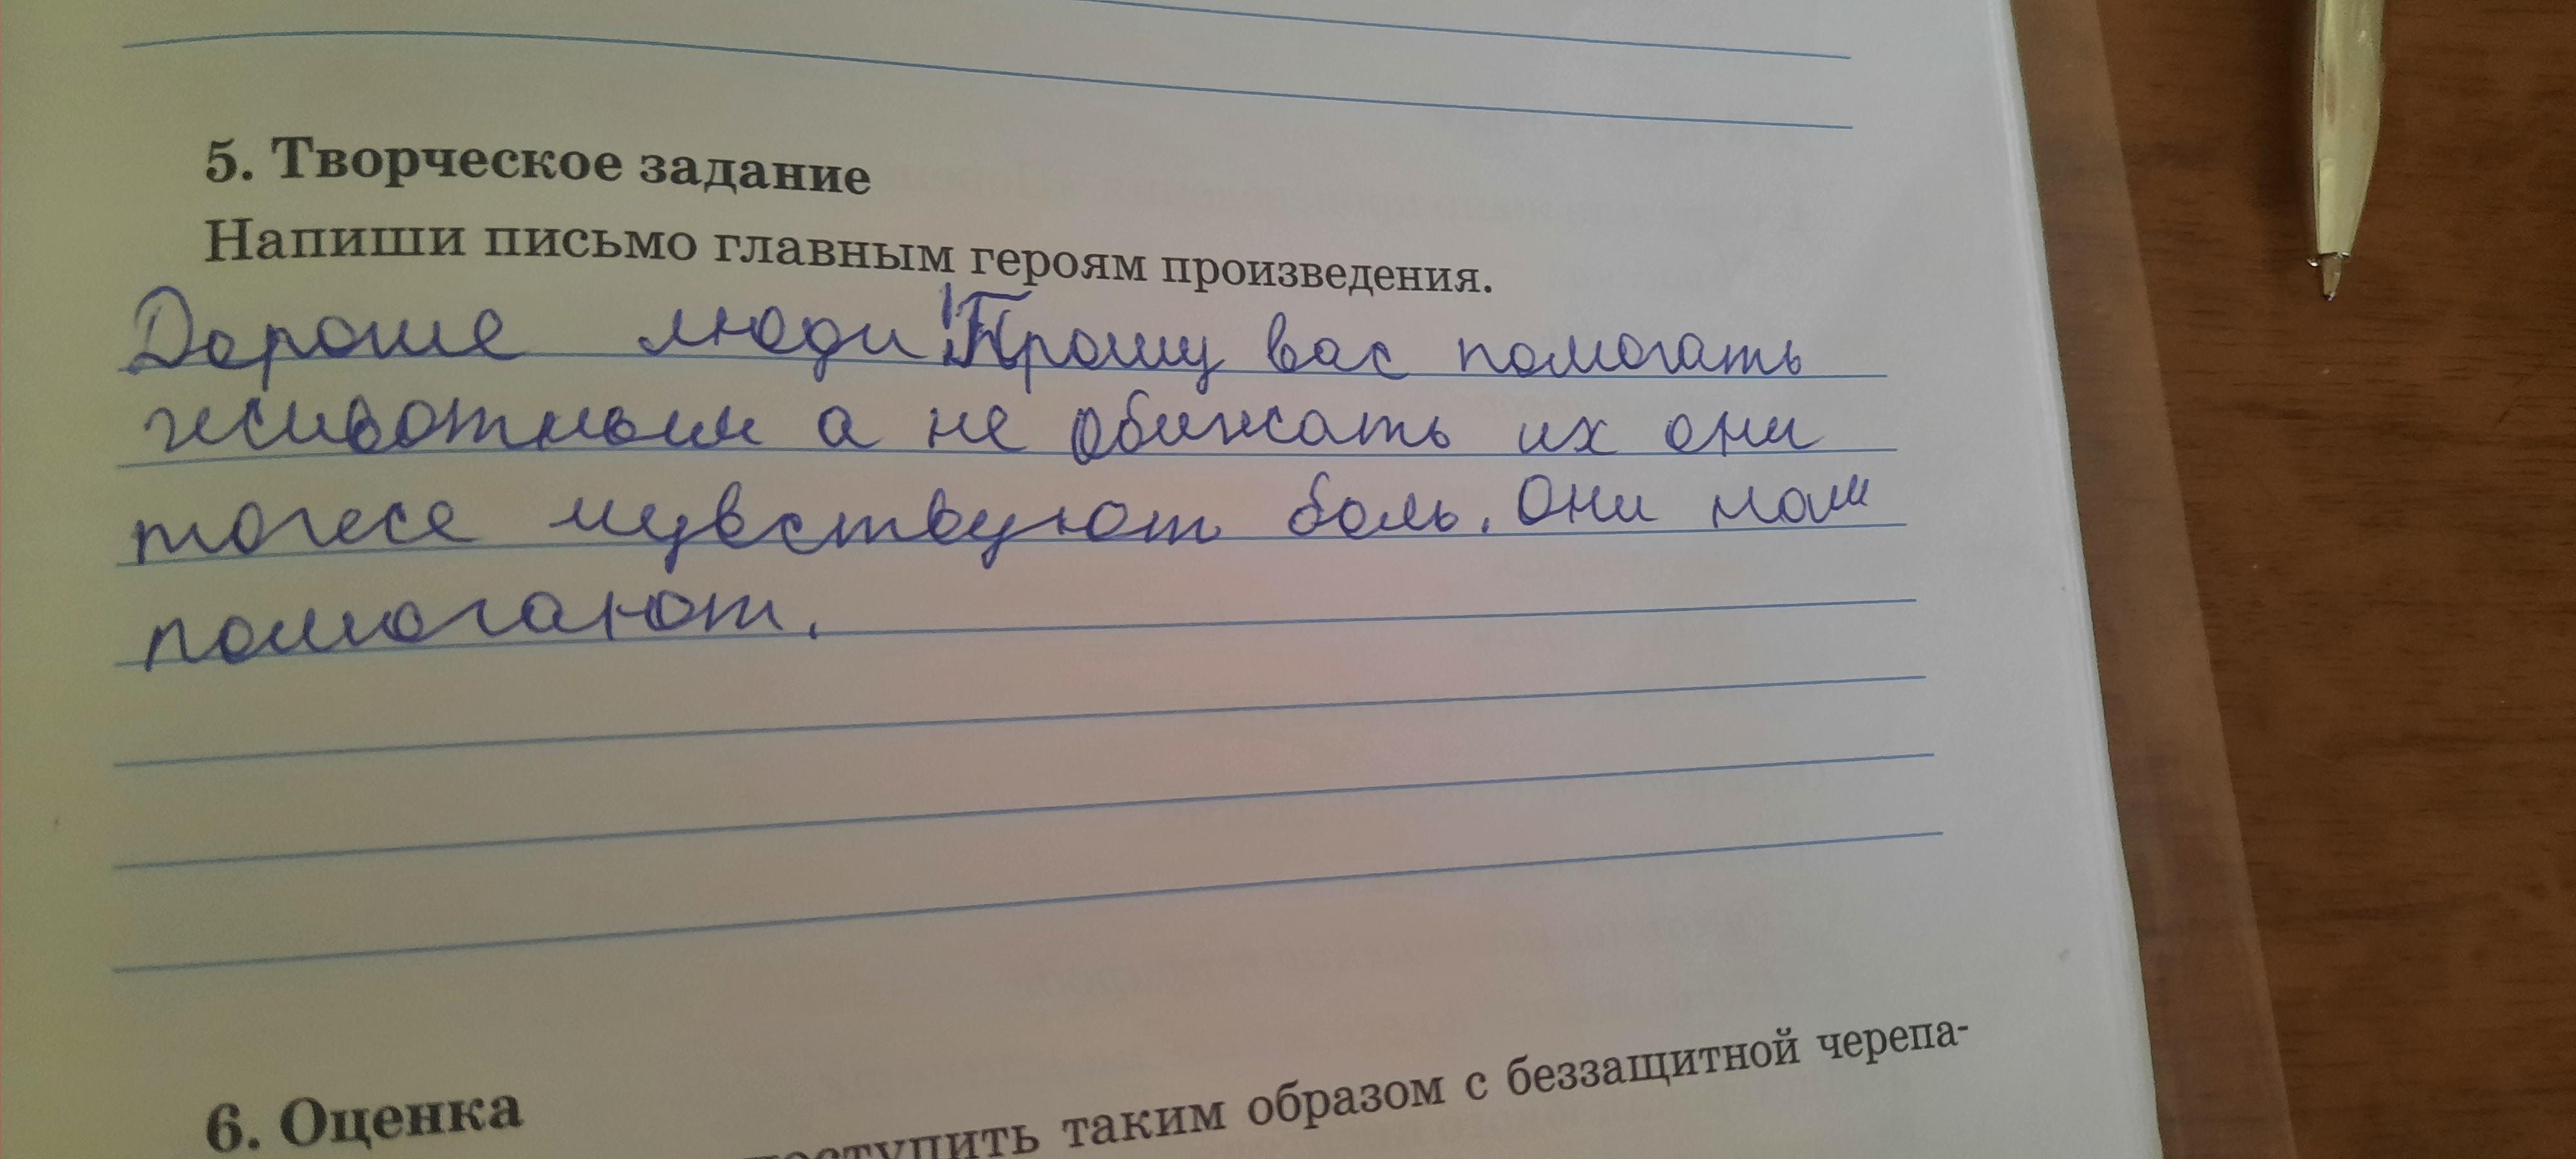 5. Творческое задание
Напиши письмо главным героям произведения.
Дороше люди! Прошу вас помогать
животным а не обижать их они
тоже чувствуют боль. Они нам
помогают.
6. Оценка
поступить таким образом с беззащитной черепа-